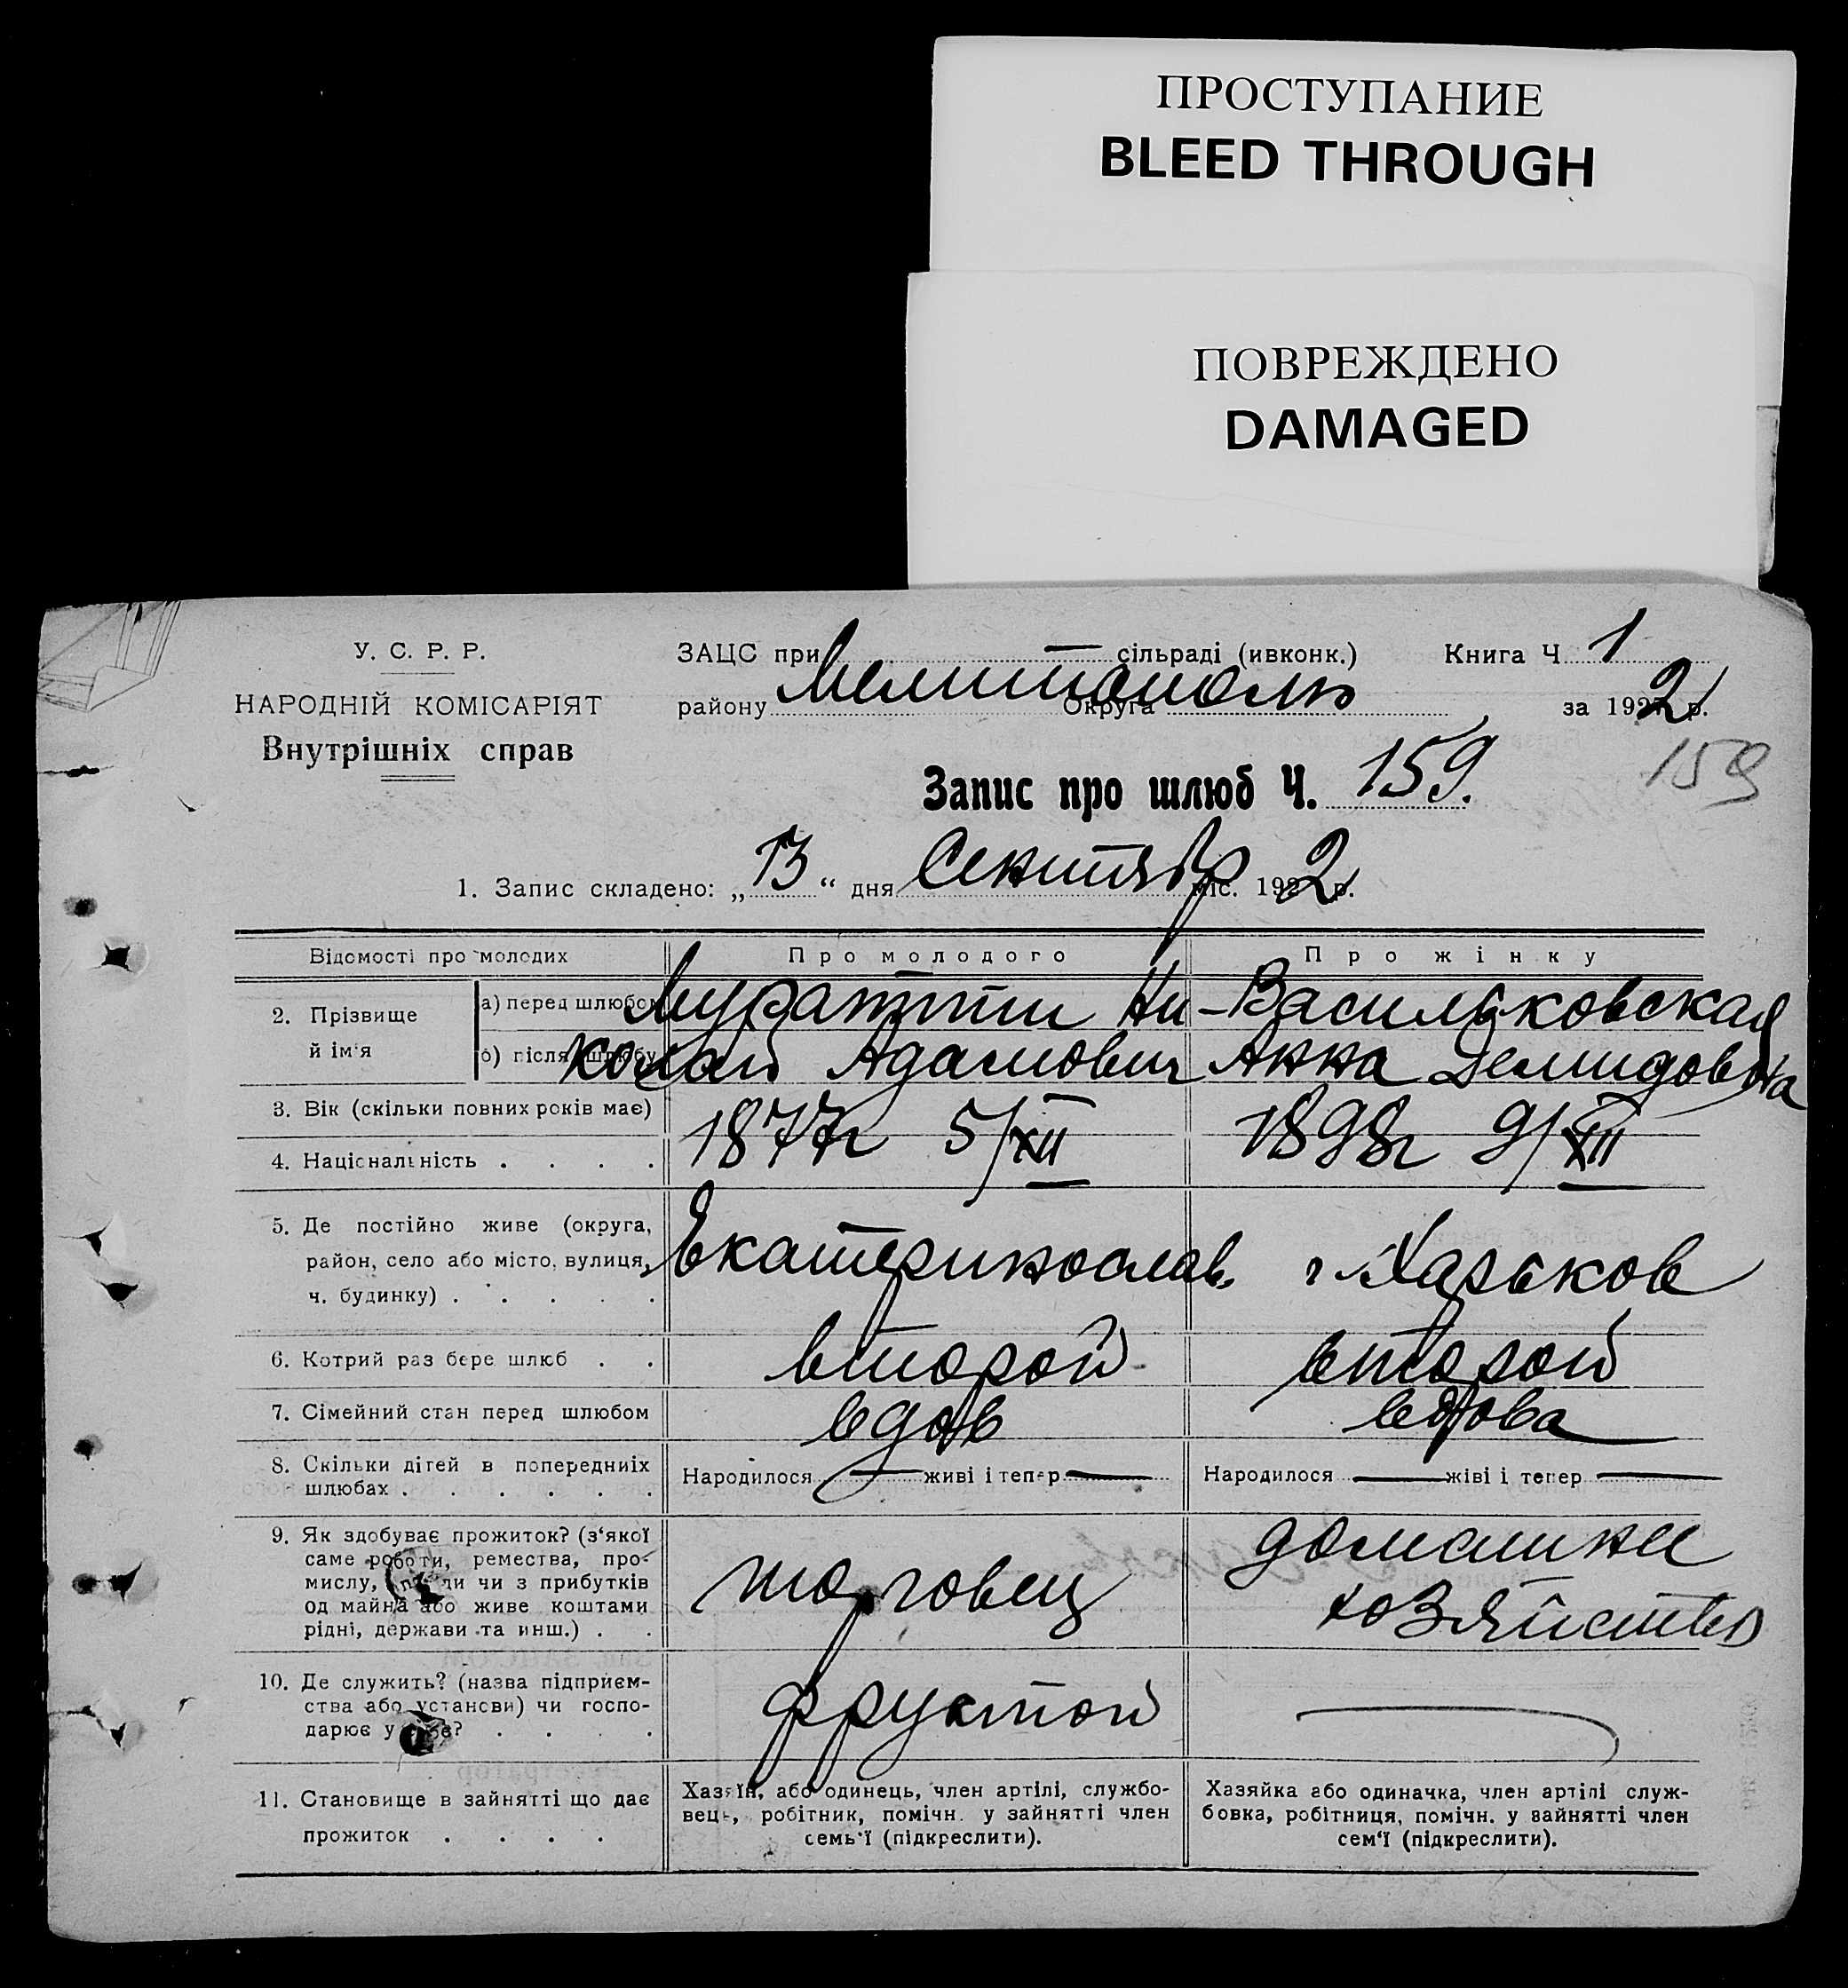 ПРОСТУПАНИЕ
BLEED THROUGH
ПОВРЕЖДЕНО
DAMAGED
У. С. Р. Р.
НАРОДНІЙ КОМІСАРІЯТ
Внутрішніх справ
ЗАЦС при — сільраді (ивконк.) Книга Ч. 1
району Мелитополь Округа за 1922 р.
Запис про шлюб Ч. 159.
159
1. Запис складено: „13“ дня Сентябр міс. 1922 р.
Відомості про молодих Про молодого Про жінку
2. Прізвище й ім'я а) перед шлюбом Муратти Ни- Васильковская
б) після шлюбу колай Адамович Анна Демидовна
3. Вік (скільки повних років має) 1877г 5/XII 1898г 9/XII
4. Національність . . . .
5. Де постійно живе (округа,
район, село або місто, вулиця, Екатеринослав. г. Харьков
ч. будинку) . . . . .
6. Котрий раз бере шлюб . . второй второй
7. Сімейний стан перед шлюбом вдов вдова
8. Скільки дітей в попередниіх Народилося — живі і тепер — Народилося — жіві і тепер —
шлюбах . . . . . .
9. Як здобуває прожиток? (з'якої домашнее
саме роботи, ремества, про-
мислу, чи з прибутків торговец
од майна або живе коштами хозяйство
рідні, держави та инш.) . .
10. Де служить? (назва підприєм-
ства або установи) чи госпо- фруктой —
дарює у себе? . . . .
11. Становище в зайнятті що дає Хазяїн, або одинець, член артілі, службо- Хазяйка або одиначка, член артілі служ-
прожиток . . . . вець, робітник, помічн. у зайнятті член бовка, робітниця, помічн. у зайнятті член
семь'ї (підкреслити). сем'ї (підкреслити).